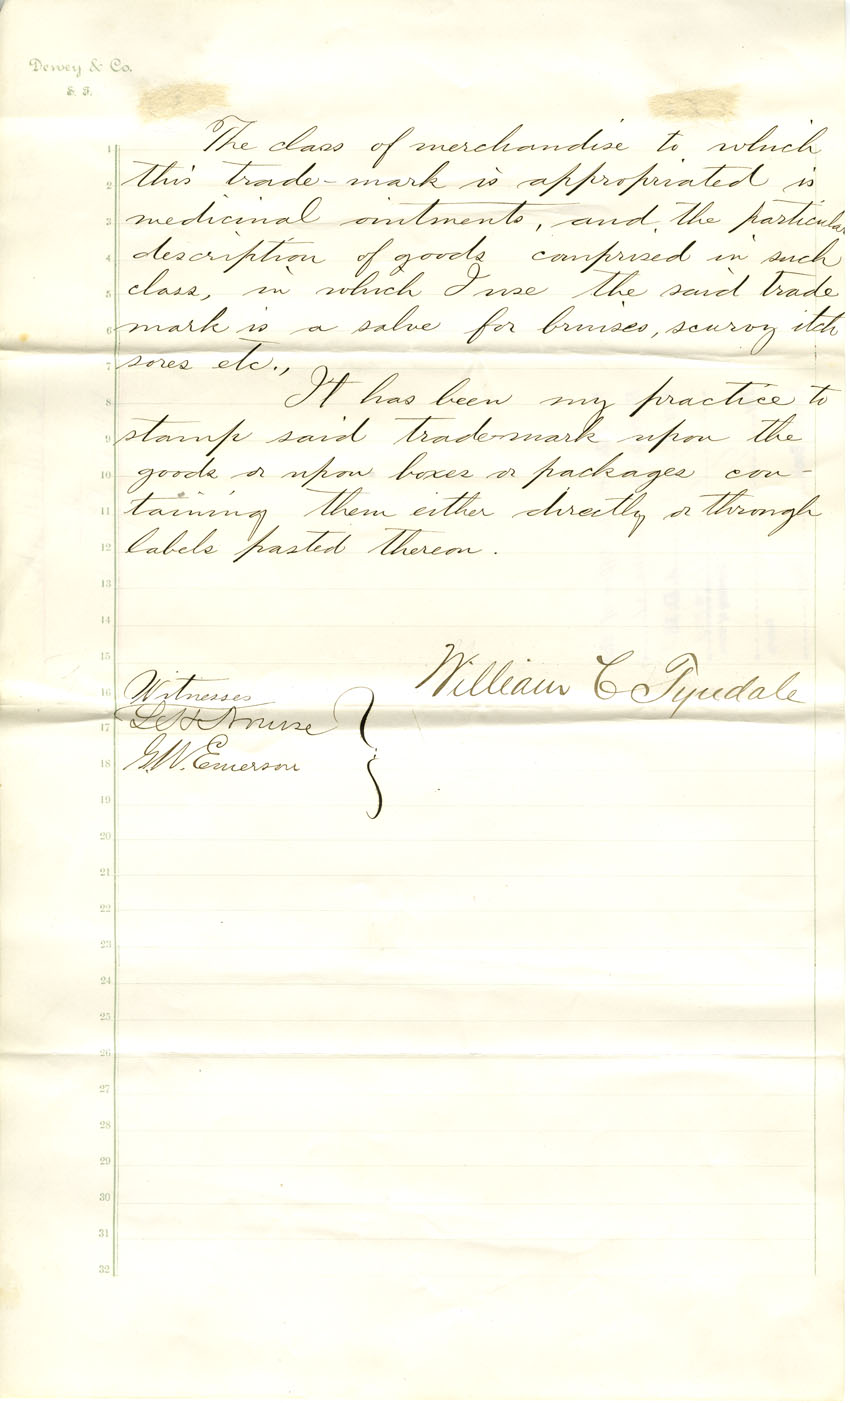 Dewey & Co.
S. F.
The class of merchandise to which
this trade-mark is appropriated is
medicinal ointments, and the particular
description of goods comprised in such
class, in which I use the said trade
mark is a salve for bruises, scurvy itch
sores etc.,
It has been my practice to
stamp said trade-mark upon the
goods or upon boxes or packages con-
taining them either directly or through
labels pasted thereon.
William C Tyndale
Witnesses
G.W. Emerson
1
2
3
4
5
6
7
8
9
10
11
12
13
14
15
16
17
18
19
20
21
22
23
24
25
26
27
28
29
30
31
32